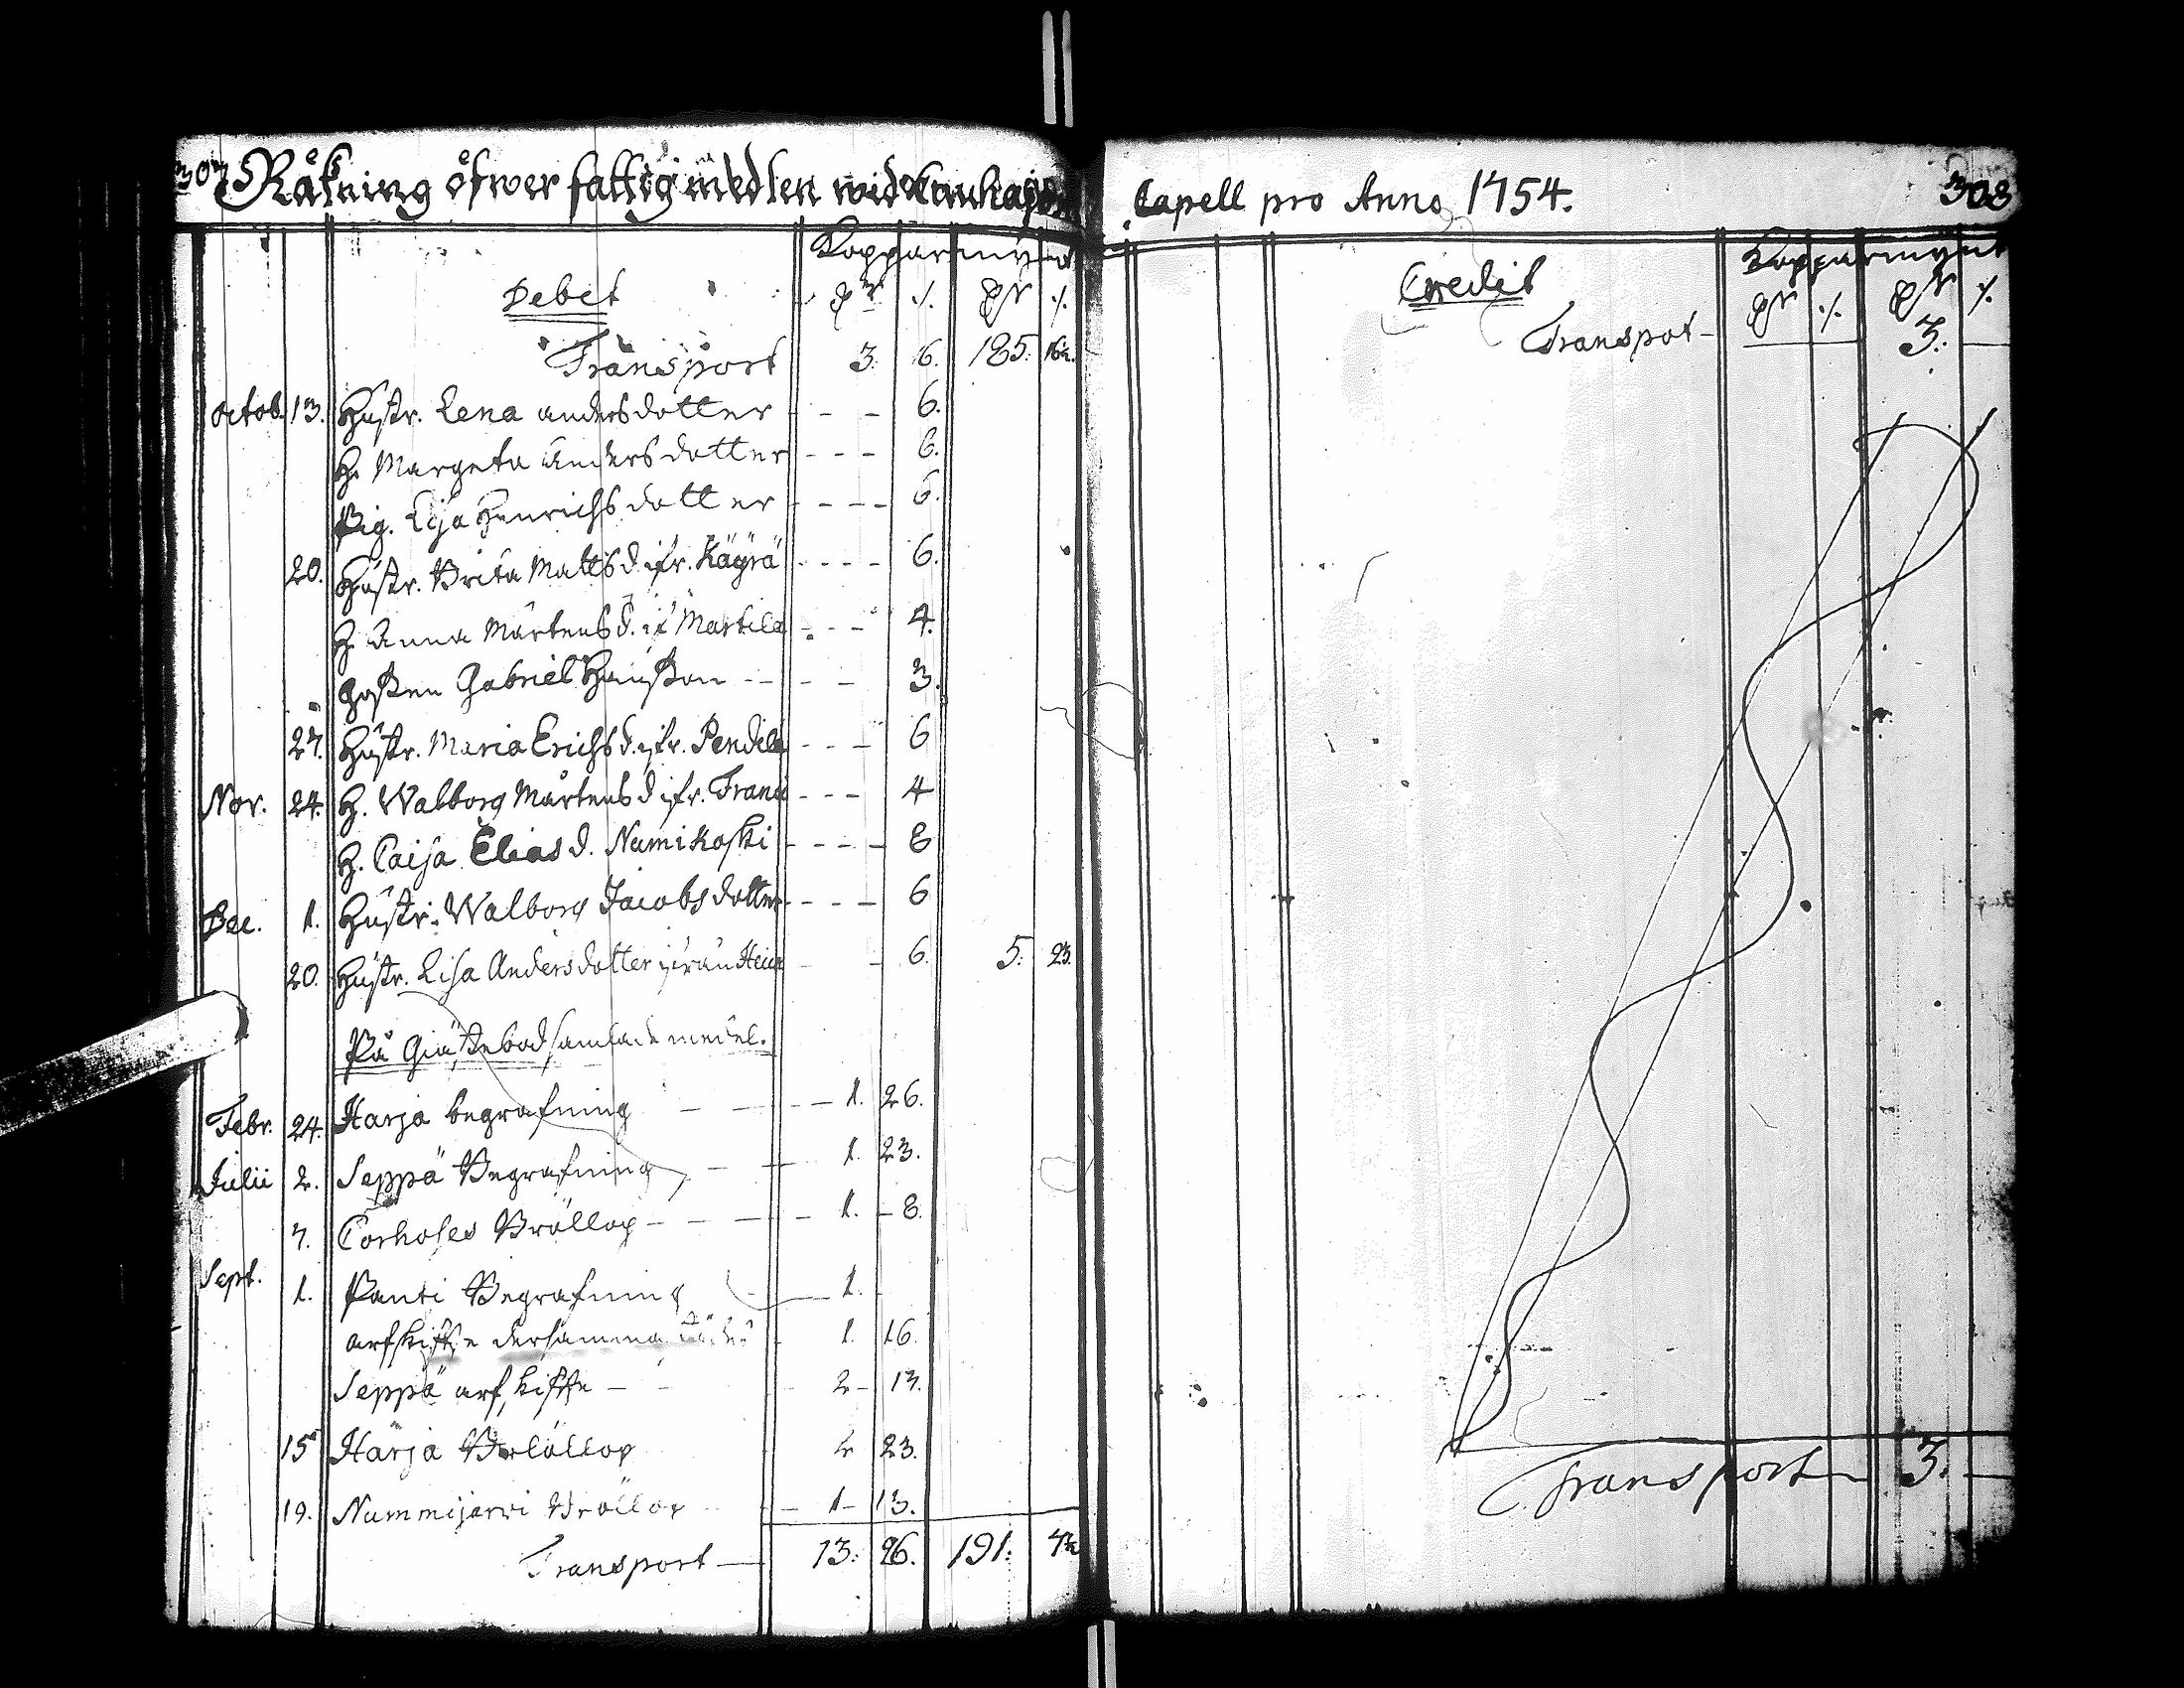 307 Räkning öfwer fattig medlen wid
Kopparmynt
Debet
Transport 3. 6. 185. 16½.
Octob. 13. Hustr. Lena andersdotter - - - 6.
H. Margeta Andersdotter - - - 6.
Pig. Lisa Henrichsdotter - - - - 6.
20. Hustr. Brita Matts d. ifr. Käyrä - - - - 6.
H. Anna Mårtens d. if Martila - - - 4.
Gossen Gabriel Hansson - - - - 3.
27. Hustr. Maria Erichs d. ifr. Pendilä - - - 6
Nov. 24. H. Walborg Mårtens d ifr. - - - 4
H. Caisa Elias d. Numikoski - - - - 8
Dec. 1. Hustr. Walborg Jacobsdotter - - - - 6
20. Hustr. Lisa Andersdotter ifrån - - 6. 5. 23.
På Giästebod samlade medel.
Febr. 24. Harja begrafning - - - - 1. 26.
Julii 2. Seppä Begrafning - - 1. 23.
7. Corholes Bröllop - - - - 1. - 8.
Sept. 1. Panti Begrafning - 1.
arfskifte dersamma - 1. 16.
Seppä arfskifte - - 2 - 13.
15 Harja Bröllop 2 23.
19. Nummijärvi Bröllop - 1 - 13.
Transport — 13. 26. 191. 7½
Capell pro Anno 1754. 308
Kopparmynt
Credit
Transpot - 3.
Transport - 3. -